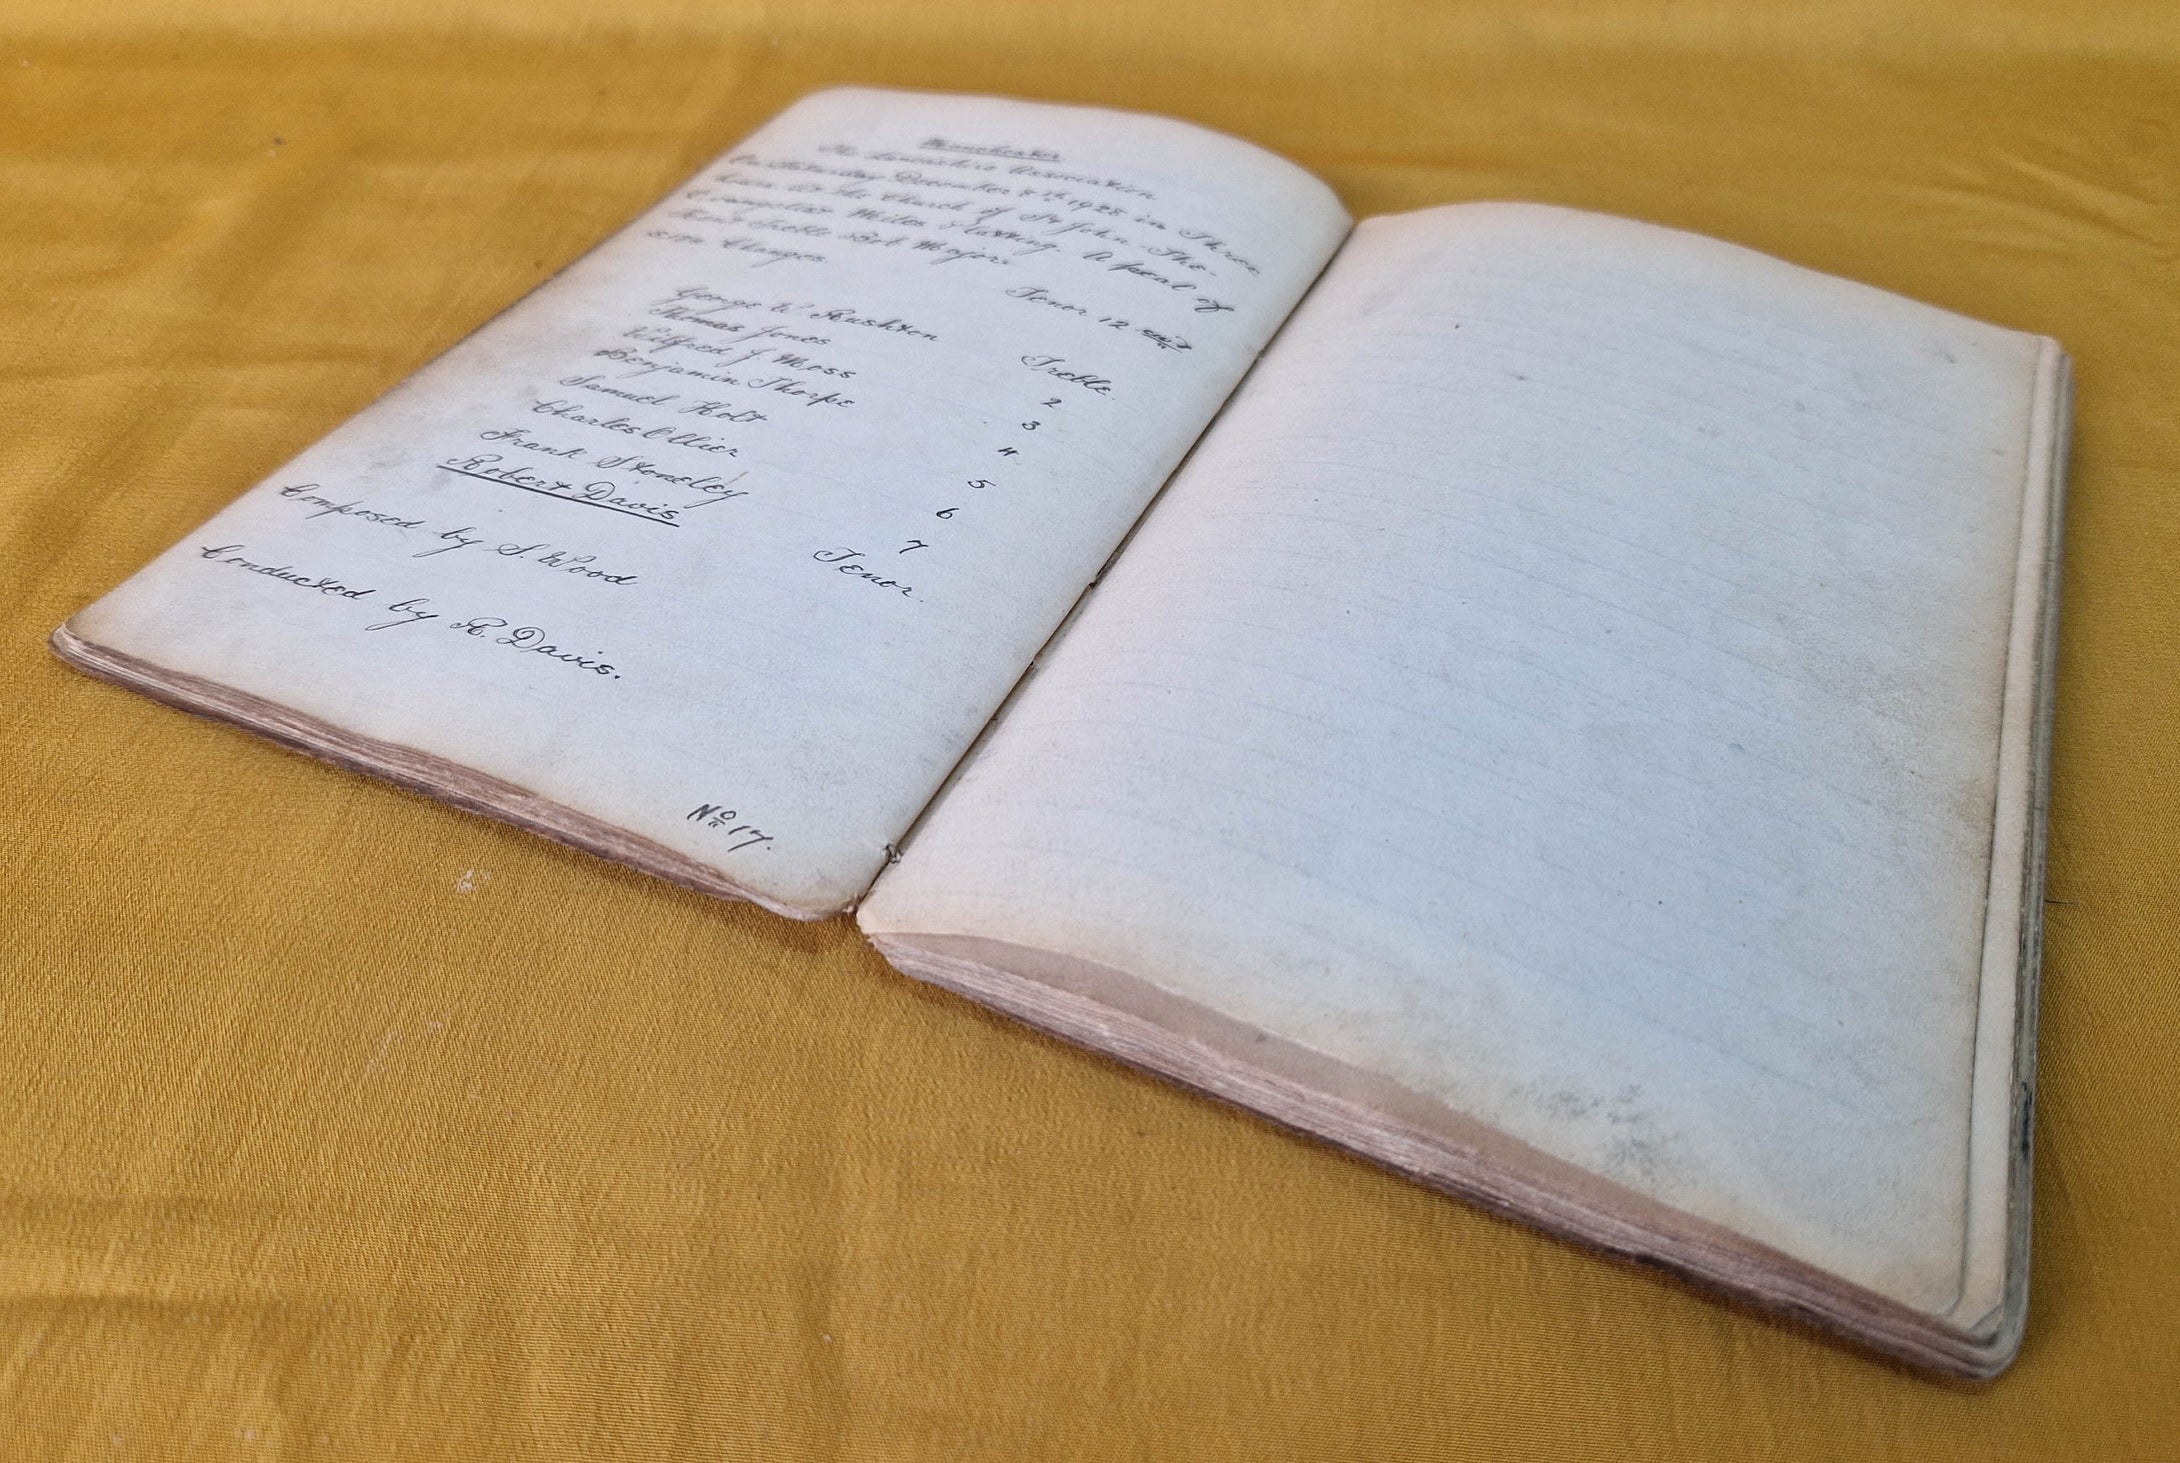 Manchester
The Lancashire Association
On Saturday December 8th, 1928 in Three
Hours At the Church of St John-The-
Evangelist Miles Platting. A peal of
Kent Treble Bob Major
Changes Tenor 12 cwt
George W. Rushton Treble.
Thomas Jones 2
Wilfred J. Moss 3
Benjamin Thorpe 4
Samuel Holt 5
Charles Ollier 6
Frank Stoneley 7
Robert Davis Tenor.
Composed by S. Wood
Conducted by R. Davis.
No 17.